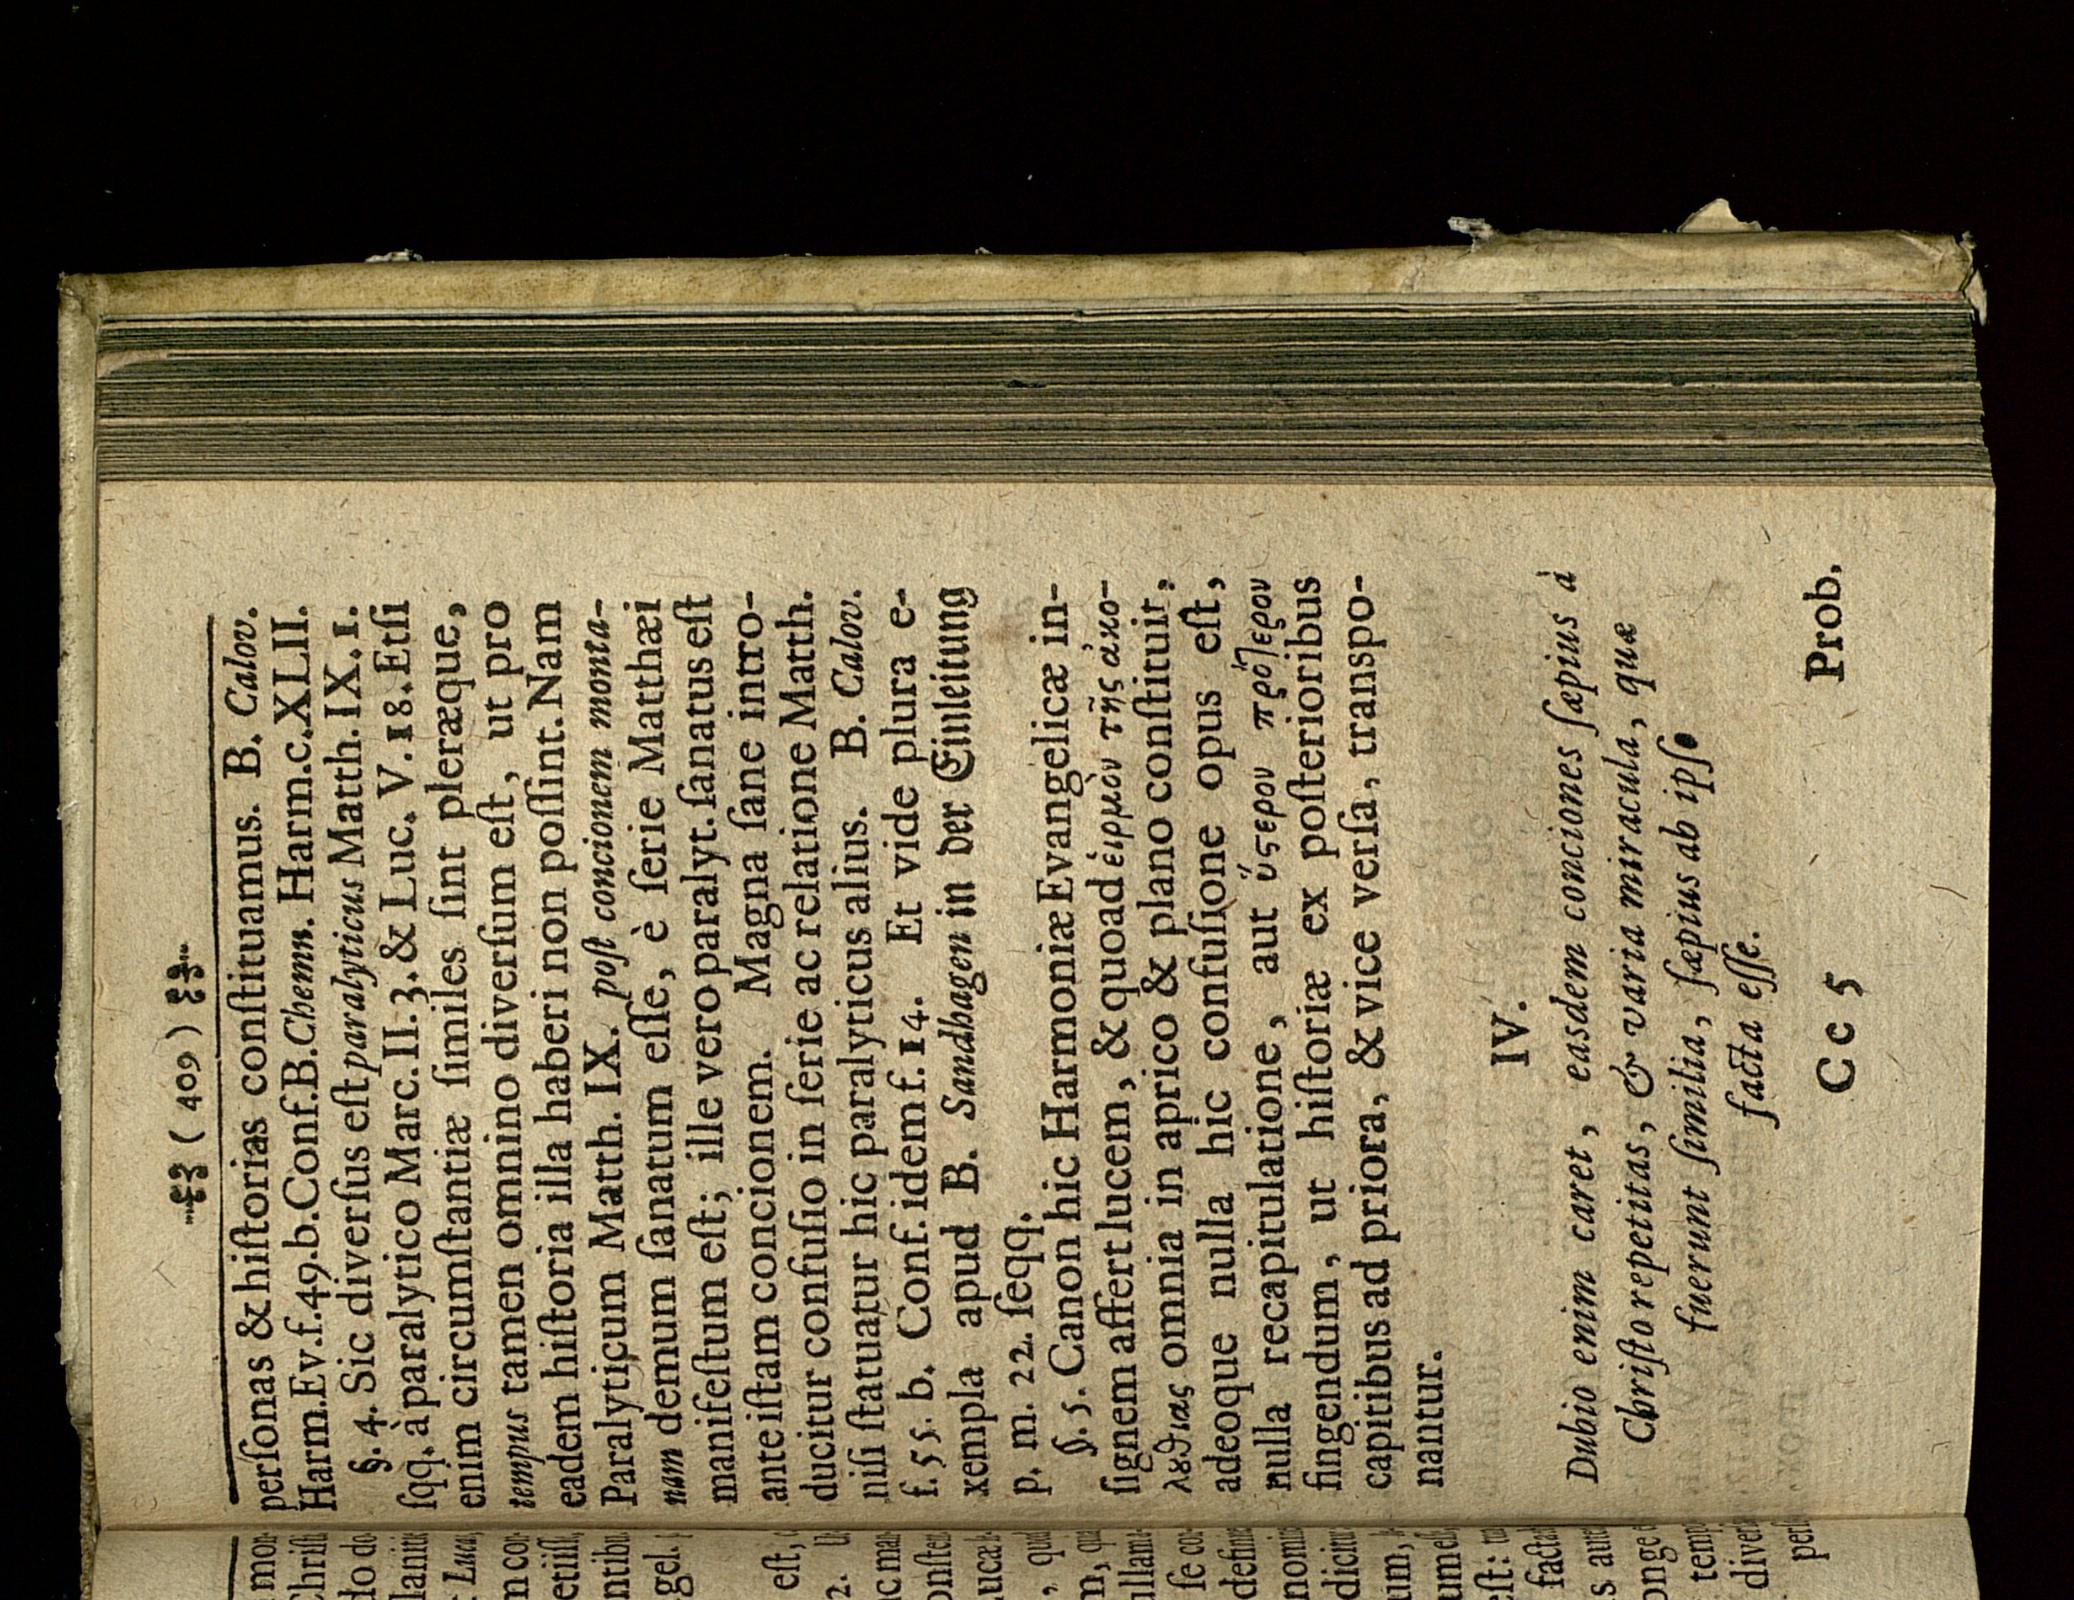 ( 409 )
perſonas & hiſtorias conſtituamus. B. Calov.
Harm.Ev.f.49.b.Conf.B.Chemn. Harm.c.XLII.
§. 4. Sic diverſus eſt paralyticus Matth. IX. 1.
ſqq. à paralytico Marc. II. 3. & Luc. V. 18. Etſi
enim circumſtantiæ ſimiles ſint pleræque,
tempus tamen omnino diverſum eſt, ut pro
eadem hiſtoria illa haberi non poſſint. Nam
Paralyticum Matth. IX. poſt concionem monta-
nam demum ſanatum eſſe, è ſerie Matthæi
manifeſtum eſt; ille vero paralyt. ſanatus eſt
ante iſtam concionem. Magna ſane intro-
ducitur confuſio in ſerie ac relatione Matth.
niſi ſtatuatur hic paralyticus alius. B. Calov.
f. 55. b. Conf. idem f. 14. Et vide plura e-
xempla apud B. Sandhagen in der Einleitung
p. m. 22. ſeqq.
§. 5. Canon hic Harmoniæ Evangelicæ in-
ſignem affert lucem, & quoad ἑιρμὸν τῆς ἀκο-
λȣθιας omnia in aprico & plano conſtituit,
adeoque nulla hic confuſione opus eſt,
nulla recapitulatione, aut ὕςερον πρότερον
fingendum, ut hiſtoriæ ex poſterioribus
capitibus ad priora, & vice verſa, transpo-
nantur.
IV.
Dubio enim caret, easdem conciones ſæpius à
Chriſto repetitas, & varia miracula, quæ
fuerunt ſimilia, ſæpius ab ipſo
facta eſſe.
Cc 5
Prob.